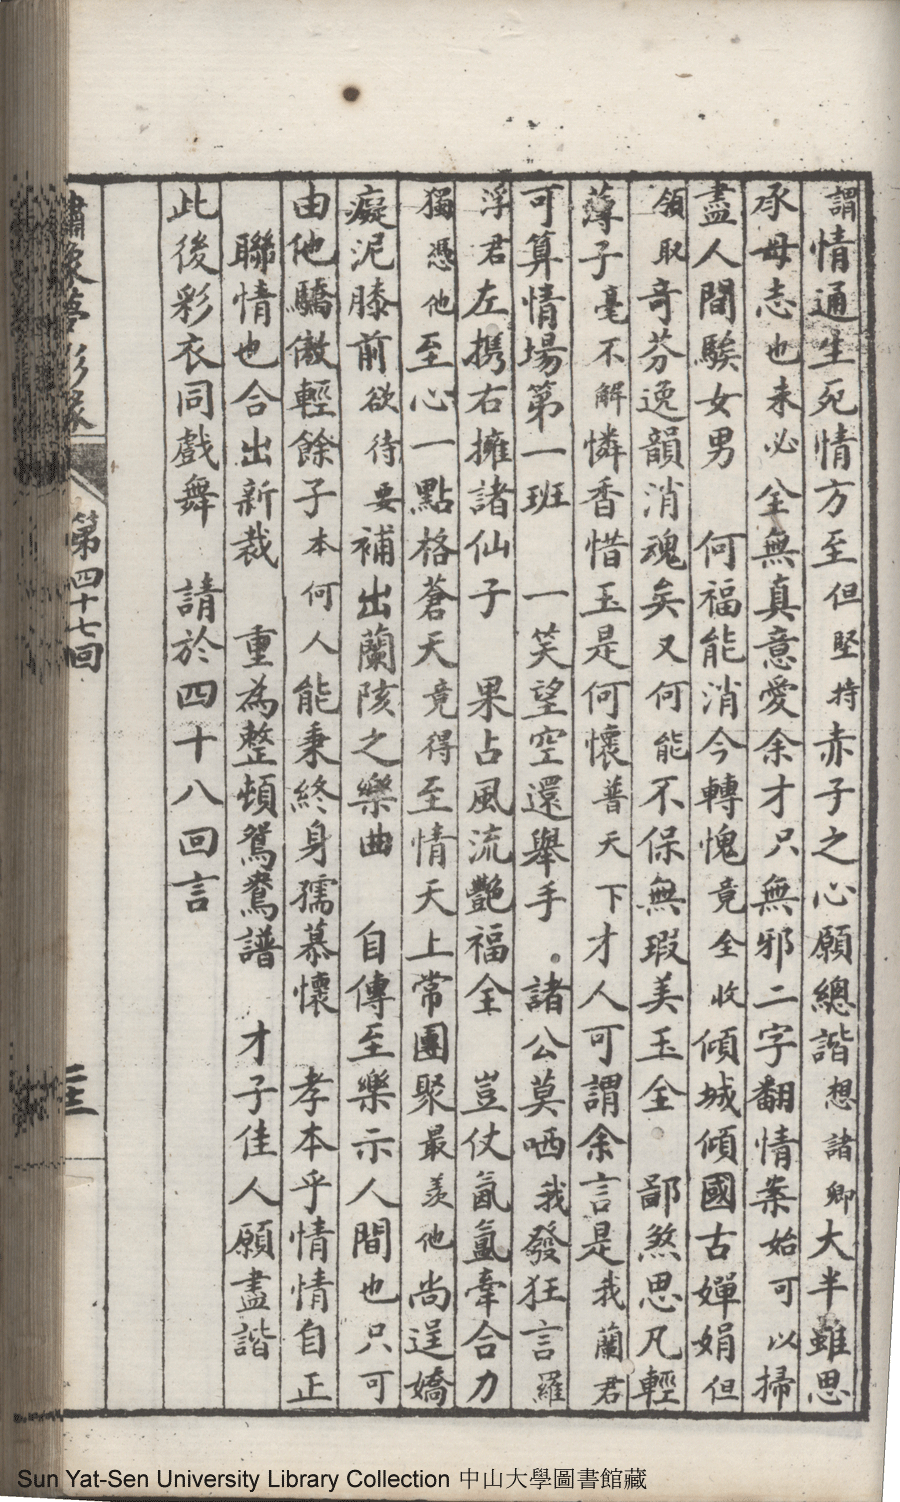 謂情通生死情方至但堅持赤子之心願總諧想諸卿大半雖思
承母志也未必全無真意愛余才只無邪二字翻情案始可以掃
盡人間騃女男 何福能消今轉愧竟全收傾城傾國古嬋娟但
領取奇芬逸韻消魂矣又何能不保無瑕美玉全 鄙煞思凡輕
薄子毫不解憐香惜玉是何懷普天下才人可謂余言是我蘭君
可算情場第一班 一笑望空還舉手 諸公莫哂我發狂言羅
浮君左携右擁諸仙子 果占風流艷福全 豈仗氤氳牽合力
獨憑他至心一點格蒼天竟得至情天上常團聚最羨他尚逞嬌
癡泥膝前欲待要補出蘭陔之樂曲 自傳至樂示人間也只可
由他驕傲輕餘子本何人能秉終身孺慕懷 孝本乎情情自正
聯情也合出新裁 重為整頓鴛鴦譜 才子佳人願盡諧
此後彩衣同戲舞 請於四十八回言
第四十七回
Sun Yat-Sen University Library Collection 中山大學圖書館藏